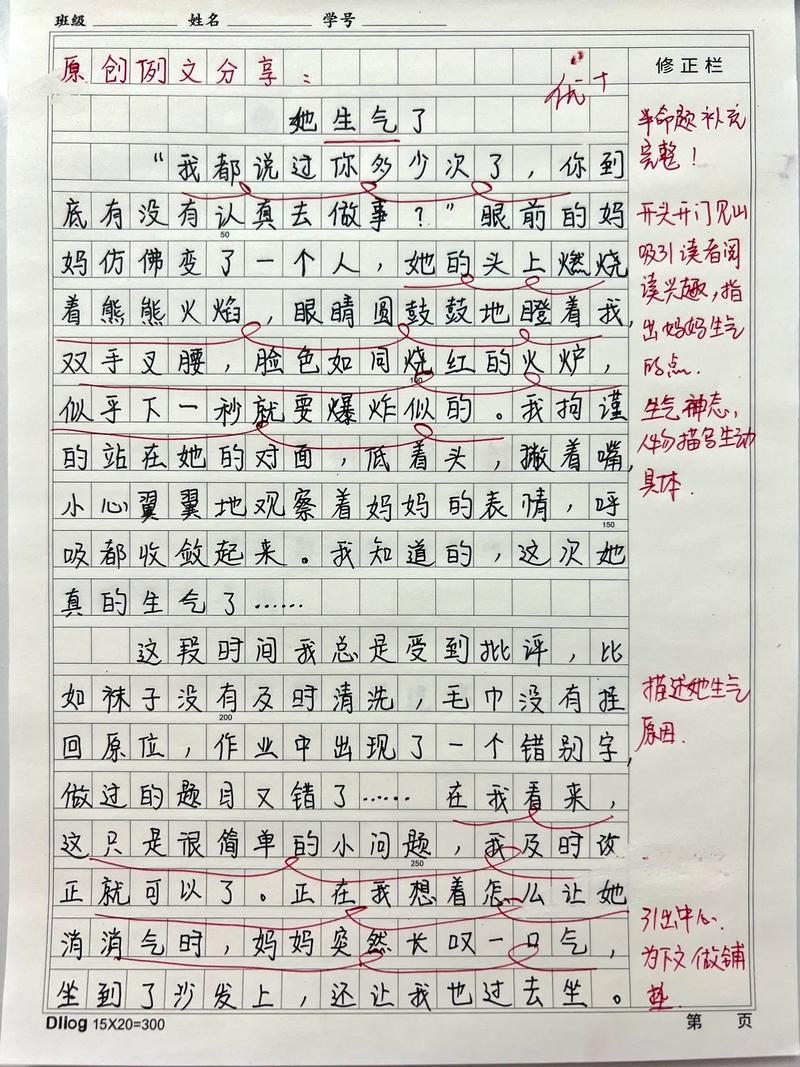 班级 姓名 学号
原创例文分享：
优+
修正栏
她生气了
半命题补充
完整！
“我都说过你多少次了，你到
底有没有认真去做事？”眼前的妈
50
开头开门见山
吸引读者阅
读兴趣，指
出妈妈生气
的点.
妈仿佛变了一个人，她的头上燃烧
着熊熊火焰，眼睛圆鼓鼓地瞪着我，
双手叉腰，脸色如同烧红的火炉，
100
似乎下一秒就要爆炸似的。我拘谨
生气神态，
人物描写生动
具体.
的站在她的对面，低着头，撇着嘴，
小心翼翼地观察着妈妈的表情，呼
150
吸都收敛起来。我知道的，这次她
真的生气了……
这段时间我总是受到批评，比
如袜子没有及时清洗，毛巾没有挂
200
描述她生气
原因.
回原位，作业中出现了一个错别字，
做过的题目又错了……在我看来，
这只是很简单的小问题，我及时改
250
正就可以了。正在我想着怎么让她
消消气时，妈妈突然长叹一口气，
引出中心.
为下文做铺
垫.
坐到了沙发上，还让我也过去坐。
Dllog 15X20=300
第 页